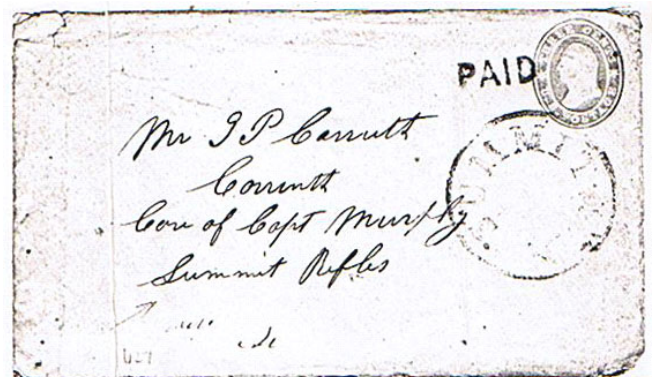 PAID
SUMMIT
Mr J P Carruth
Corrinth
Care of Capt Murphy
Summit Rifles